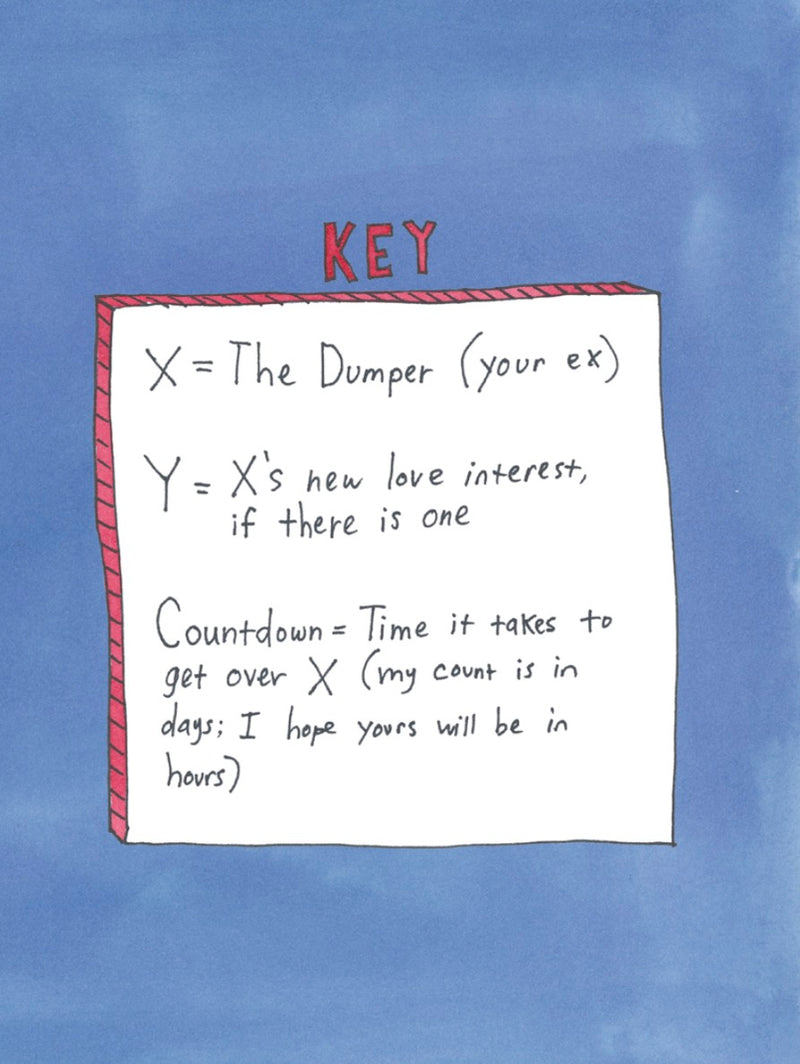 KEY
X = The Dumper (your ex)
Y = X's new love interest,
if there is one
Countdown = Time it takes to
get over X (my count is in
days; I hope yours will be in
hours)